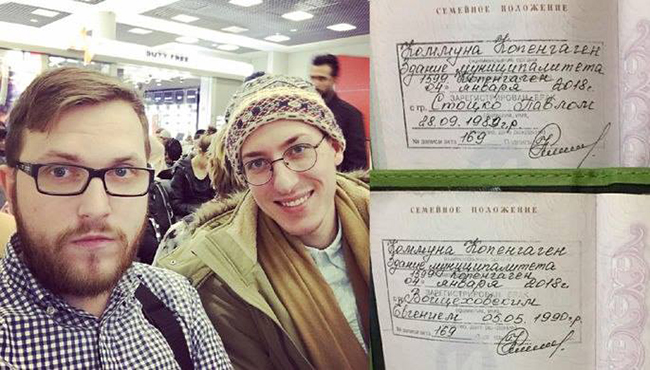 DUTY FREE
СЕМЕЙНОЕ ПОЛОЖЕНИЕ
Коммуна Копенгаген
Здание муниципалитета
1599 Копенгаген
04 января 2018г.
ЗАРЕГИСТРИРОВАН БРАК
с гр. Стоцко Павлом
28.09.1989г.р.
№ записи акта 169
СЕМЕЙНОЕ ПОЛОЖЕНИЕ
Коммуна Копенгаген
Здание муниципалитета
1599 Копенгаген
04 января 2018г.
ЗАРЕГИСТРИРОВАН
с гр. Войцеховским
Евгением 05.05.1990г.р.
№ записи акта 169